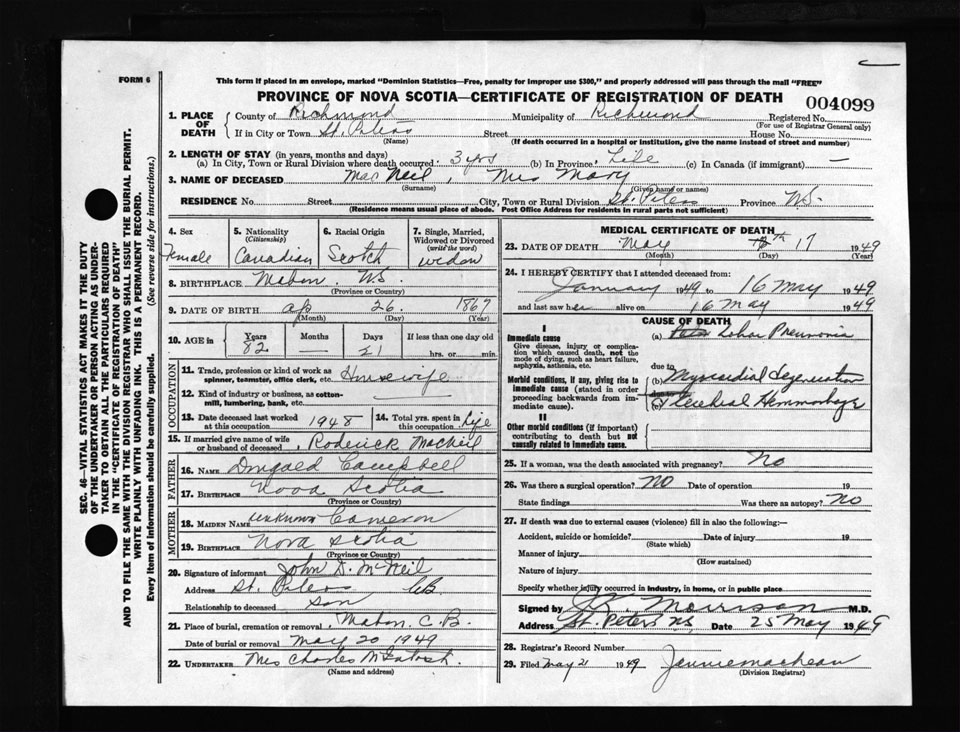 FORM 6
This form if placed in an envelope, marked "Dominion Statistics—Free, penalty for improper use $300," and properly addressed will pass through the mail "FREE"
PROVINCE OF NOVA SCOTIA—CERTIFICATE OF REGISTRATION OF DEATH 004099
1. PLACE OF DEATH County of Richmond Municipality of Richmond Registered No.
(For use of Registrar General only)
If in City or Town St. Peters Street House No.
(Name) (If death occurred in a hospital or institution, give the name instead of street and number)
2. LENGTH OF STAY (in years, months and days)
(a) In City, Town or Rural Division where death occurred 3 yrs (b) In Province Life (c) In Canada (if immigrant) —
3. NAME OF DECEASED MacNeil, Mrs Mary
(Surname) (Given name or names)
RESIDENCE No. Street City, Town or Rural Division St. Peters Province N.S.
(Residence means usual place of abode. Post Office Address for residents in rural parts not sufficient)
4. Sex Female
5. Nationality (Citizenship) Canadian
6. Racial Origin Scotch
7. Single, Married, Widowed or Divorced (write the word) widow
8. BIRTHPLACE Mabou N.S.
(Province or Country)
9. DATE OF BIRTH ap 26 1867
(Month) (Day) (Year)
10. AGE in Years 82 Months — Days 21 If less than one day old hrs. or min.
OCCUPATION
11. Trade, profession or kind of work as spinner, teamster, office clerk, etc. Housewife
12. Kind of industry or business, as cotton-mill, lumbering, bank, etc.
13. Date deceased last worked at this occupation 1948
14. Total yrs. spent in this occupation Life
15. If married give name of wife or husband of deceased Roderick MacNeil
FATHER
16. NAME Dougald Campbell
17. BIRTHPLACE Nova Scotia
(Province or Country)
MOTHER
18. MAIDEN NAME unknown Cameron
19. BIRTHPLACE Nova Scotia
(Province or Country)
20. Signature of informant John D. McNeil
Address St. Peters C.B.
Relationship to deceased Son
21. Place of burial, cremation or removal Mabou C.B.
Date of burial or removal May 20 1949
22. UNDERTAKER Mrs Charles McIntosh
(Name and address)
MEDICAL CERTIFICATE OF DEATH
23. DATE OF DEATH May 17 1949
(Month) (Day) (Year)
24. I HEREBY CERTIFY that I attended deceased from:
January 1949 to 16 May 1949
and last saw her alive on 16 May 1949
CAUSE OF DEATH
I
Immediate cause
Give disease, injury or complication which caused death, not the mode of dying, such as heart failure, asphyxia, asthenia, etc.
(a) Lobar Pneumonia
due to
Morbid conditions, if any, giving rise to immediate cause (stated in order proceeding backwards from immediate cause).
(b) Myocardial degeneration
due to
(c) Hemmorhage
II
Other morbid conditions (if important) contributing to death but not causally related to immediate cause.
25. If a woman, was the death associated with pregnancy? No
26. Was there a surgical operation? NO Date of operation 19
State findings Was there an autopsy? NO
27. If death was due to external causes (violence) fill in also the following:—
Accident, suicide or homicide? Date of injury 19
(State which)
Manner of injury
(How sustained)
Nature of injury
Specify whether injury occurred in industry, in home, or in public place
Signed by Morrison M.D.
Address St. Peters NS Date 25 May 1949
28. Registrar's Record Number
29. Filed May 21 1949 Jennie MacLean
(Division Registrar)
SEC. 46—VITAL STATISTICS ACT MAKES IT THE DUTY OF THE UNDERTAKER OR PERSON ACTING AS UNDERTAKER TO OBTAIN ALL THE PARTICULARS REQUIRED IN THE "CERTIFICATE OF REGISTRATION OF DEATH" AND TO FILE THE SAME WITH THE DIVISION REGISTRAR WHO SHALL ISSUE THE BURIAL PERMIT.
WRITE PLAINLY WITH UNFADING INK. THIS IS A PERMANENT RECORD.
Every item of information should be carefully supplied. (See reverse side for instructions.)